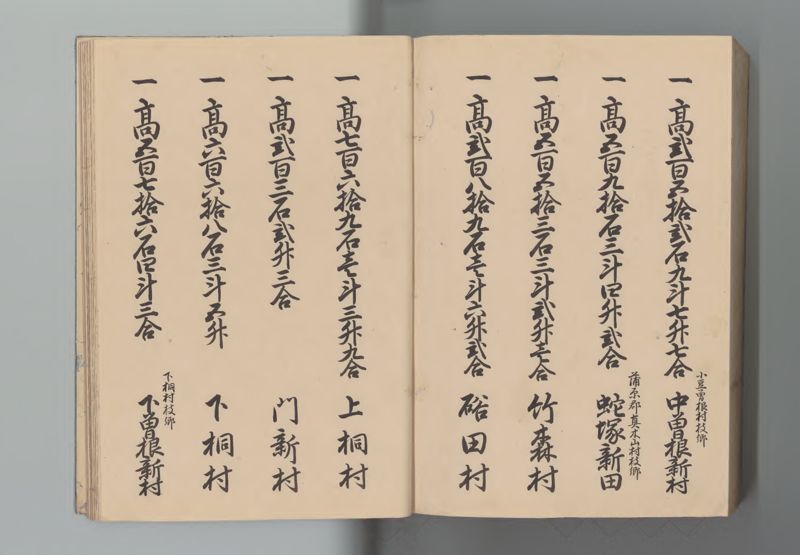 一高弐百五拾弐石九斗七升七合
小豆曽根村枝郷
中曽根新村
一高五百九拾石三斗四升弐合
蒲原郡真木山村枝郷
蛇塚新田
一高五百五拾三石三斗弐升壱合
竹森村
一高弐百八拾九石壱斗六升弐合
硲田村
一高七百六拾九石壱斗三升九合
上桐村
一高弐百三石弐升三合
門新村
一高六百六拾八石三斗五升
下桐村
一高五百七拾六石四斗三合
下桐村枝郷
下曽根新村